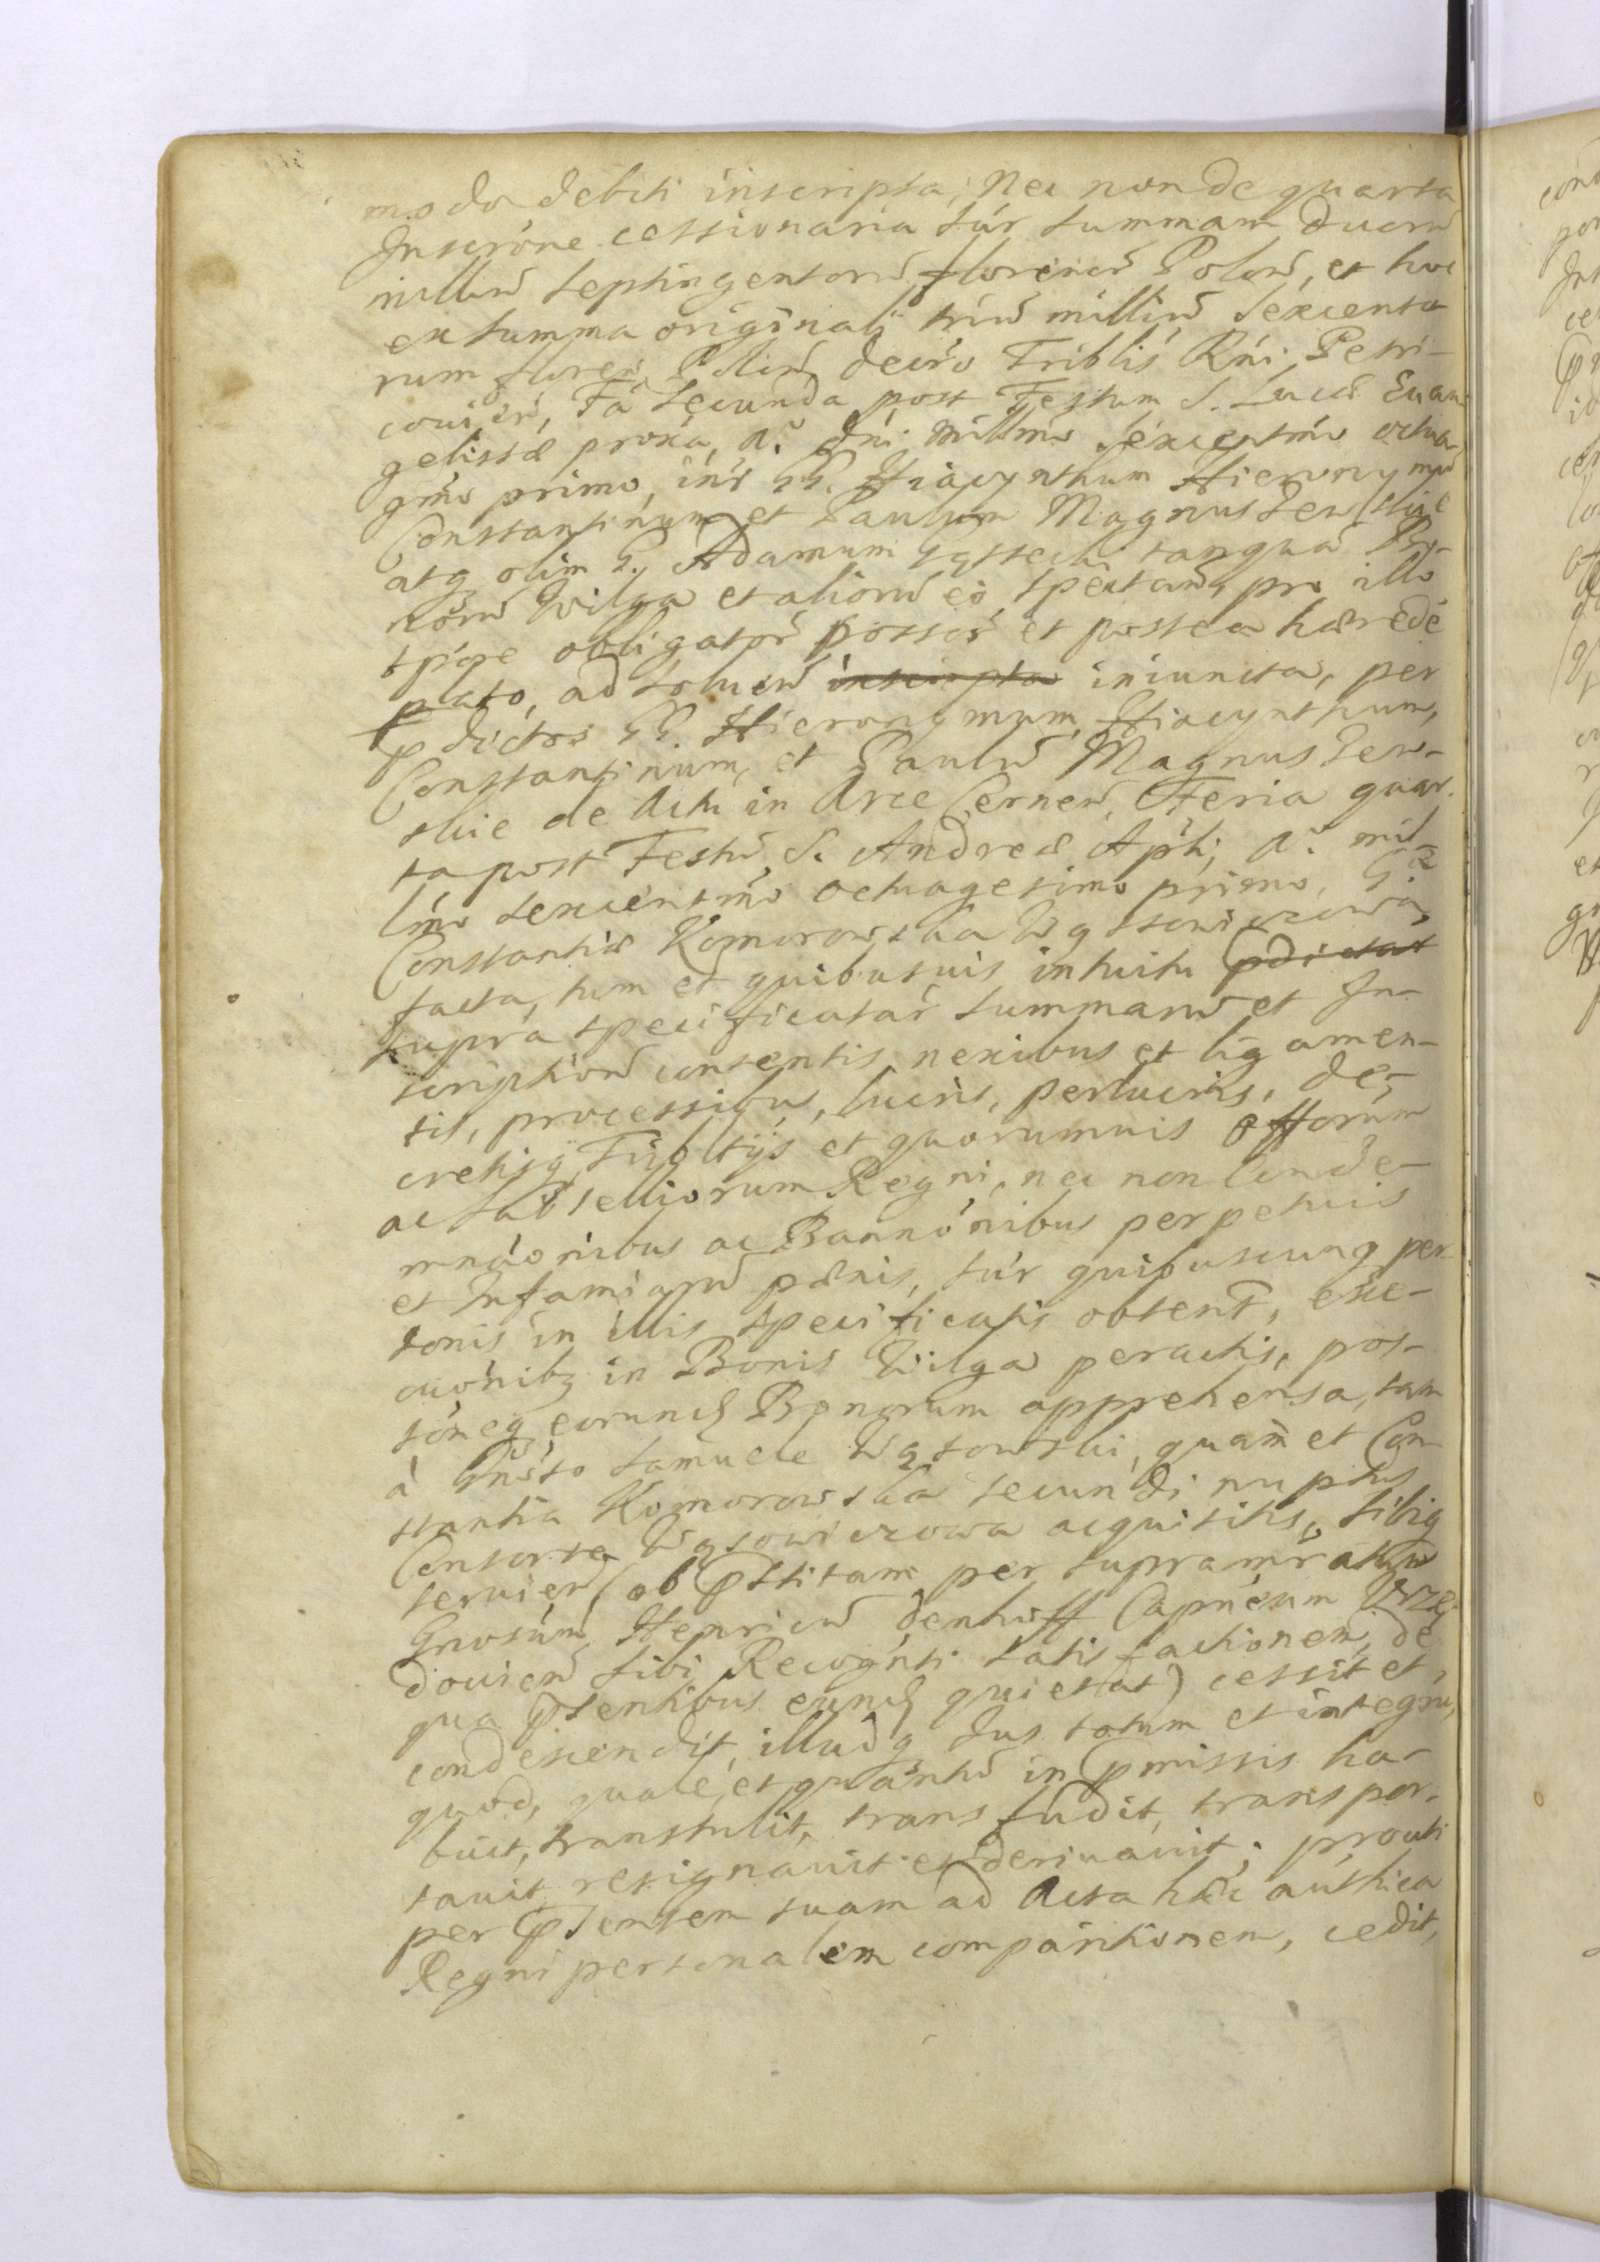 modo debiti inscripta, Nec non de quarta
Inscrõne cessionaria súr summam duorũ
milliũ septingentorũ florenorũ Polon̄, et hoc
ex summa originali triũ milliũ sexcento
rum floren̄ Polon̄ decrõ Triblis Rńi Petri-
covien̄, Fã Secunda post Festum S. Lucæ Euan
gelistæ proxa, Aõ Dńi Millmo Sexcentmo octua-
gmo primo, int́ GG. Hiacynthum Hieronymũ
Constantinum et Paulum Magnuszewskie
atq̨ olim G. Adamum tanquã Bo-
norũ Wilga et aliorũ eõ spectan̄, pro illo
tp̃re obligator̃ possor̃ et postea hærede
plato, ad soluen̄ inscripta iniuncta, per
p̃dictos GG. Hieronymum, Hiacynthum,
Constantinum, et Paulũ Magnuszew-
skie de Actu in Arce Cernen̄, Feria quar-
ta post Festũ S. Andreæ Apli, Aõ mil-
lmo sexcentmo octuagesimo primo, G.
Constantiæ Komorowska Wąssowiczowa
facta, tum et quibusuis intuitu p̃dictar̃
supra specificatar̃ summarũ et In-
scriptionũ contentis, nexibus et ligamen-
tis, processibus, lucris, perlucris, de-
cretisq̨ Tribltijs et quorumuis Offorum
ac subselliorum Regni, nec non conde-
mnãonibus ac Bannónibus perpetuis
et Infamiarũ pœnis, súr quibuscunq̨ per-
sonis in illis specificatis obtent̃, exe-
cuónibq̨ in Bonis Wilga peractis, pos-
sóneq̨ eorund Bonorum apprehensa, tam
à Gnóso Samuele Wąsowski, quam et Con
stantia Komorowska secundi nuptus
Consorte Wąsowiczowa acquisitis, sibiq̨
seruien̄ (ob p̃stitam per supramr̃atum
Gnosum Henricũ Denhoff Capńeum Urzę-
dovien̄ sibi Recogńti satisfactionem, de
qua p̃sentibus eund quietat) cessit et
condescendit, illudq̨ Jus totum et integrũ,
quod, quale, et quantũ in p̃missis ha-
buit, transtulit, transfudit, transpor-
tauit, resignauit et deriuauit; prouti
per p̃sentem suam ad Acta hæc authica
Regni personalem comparitionem, cedit,